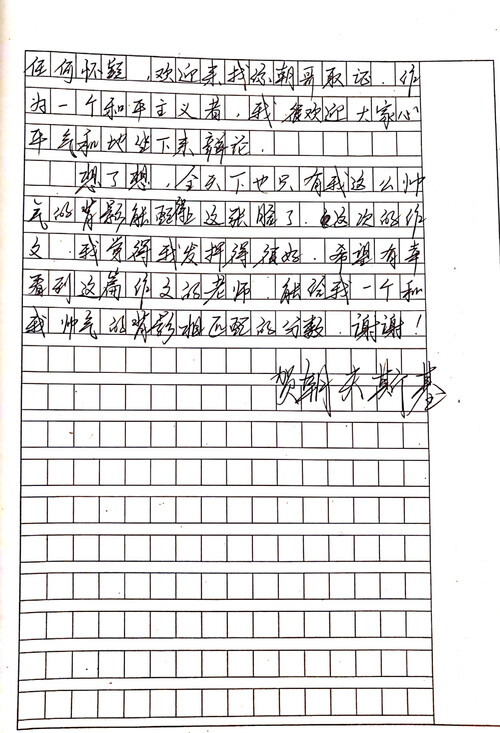 任何怀疑,欢迎来找你朝哥取证.作
为一个和平主义者,我很欢迎大家心
平气和地坐下来辩论.
想了想,全天下也只有我这么帅
气的背影能配这张脸了.这次的作
文.我觉得我发挥得很好.希望有幸
看到这篇作文的老师.能给我一个和
我帅气的背影相匹配的分数.谢谢!
贺朝夫斯基